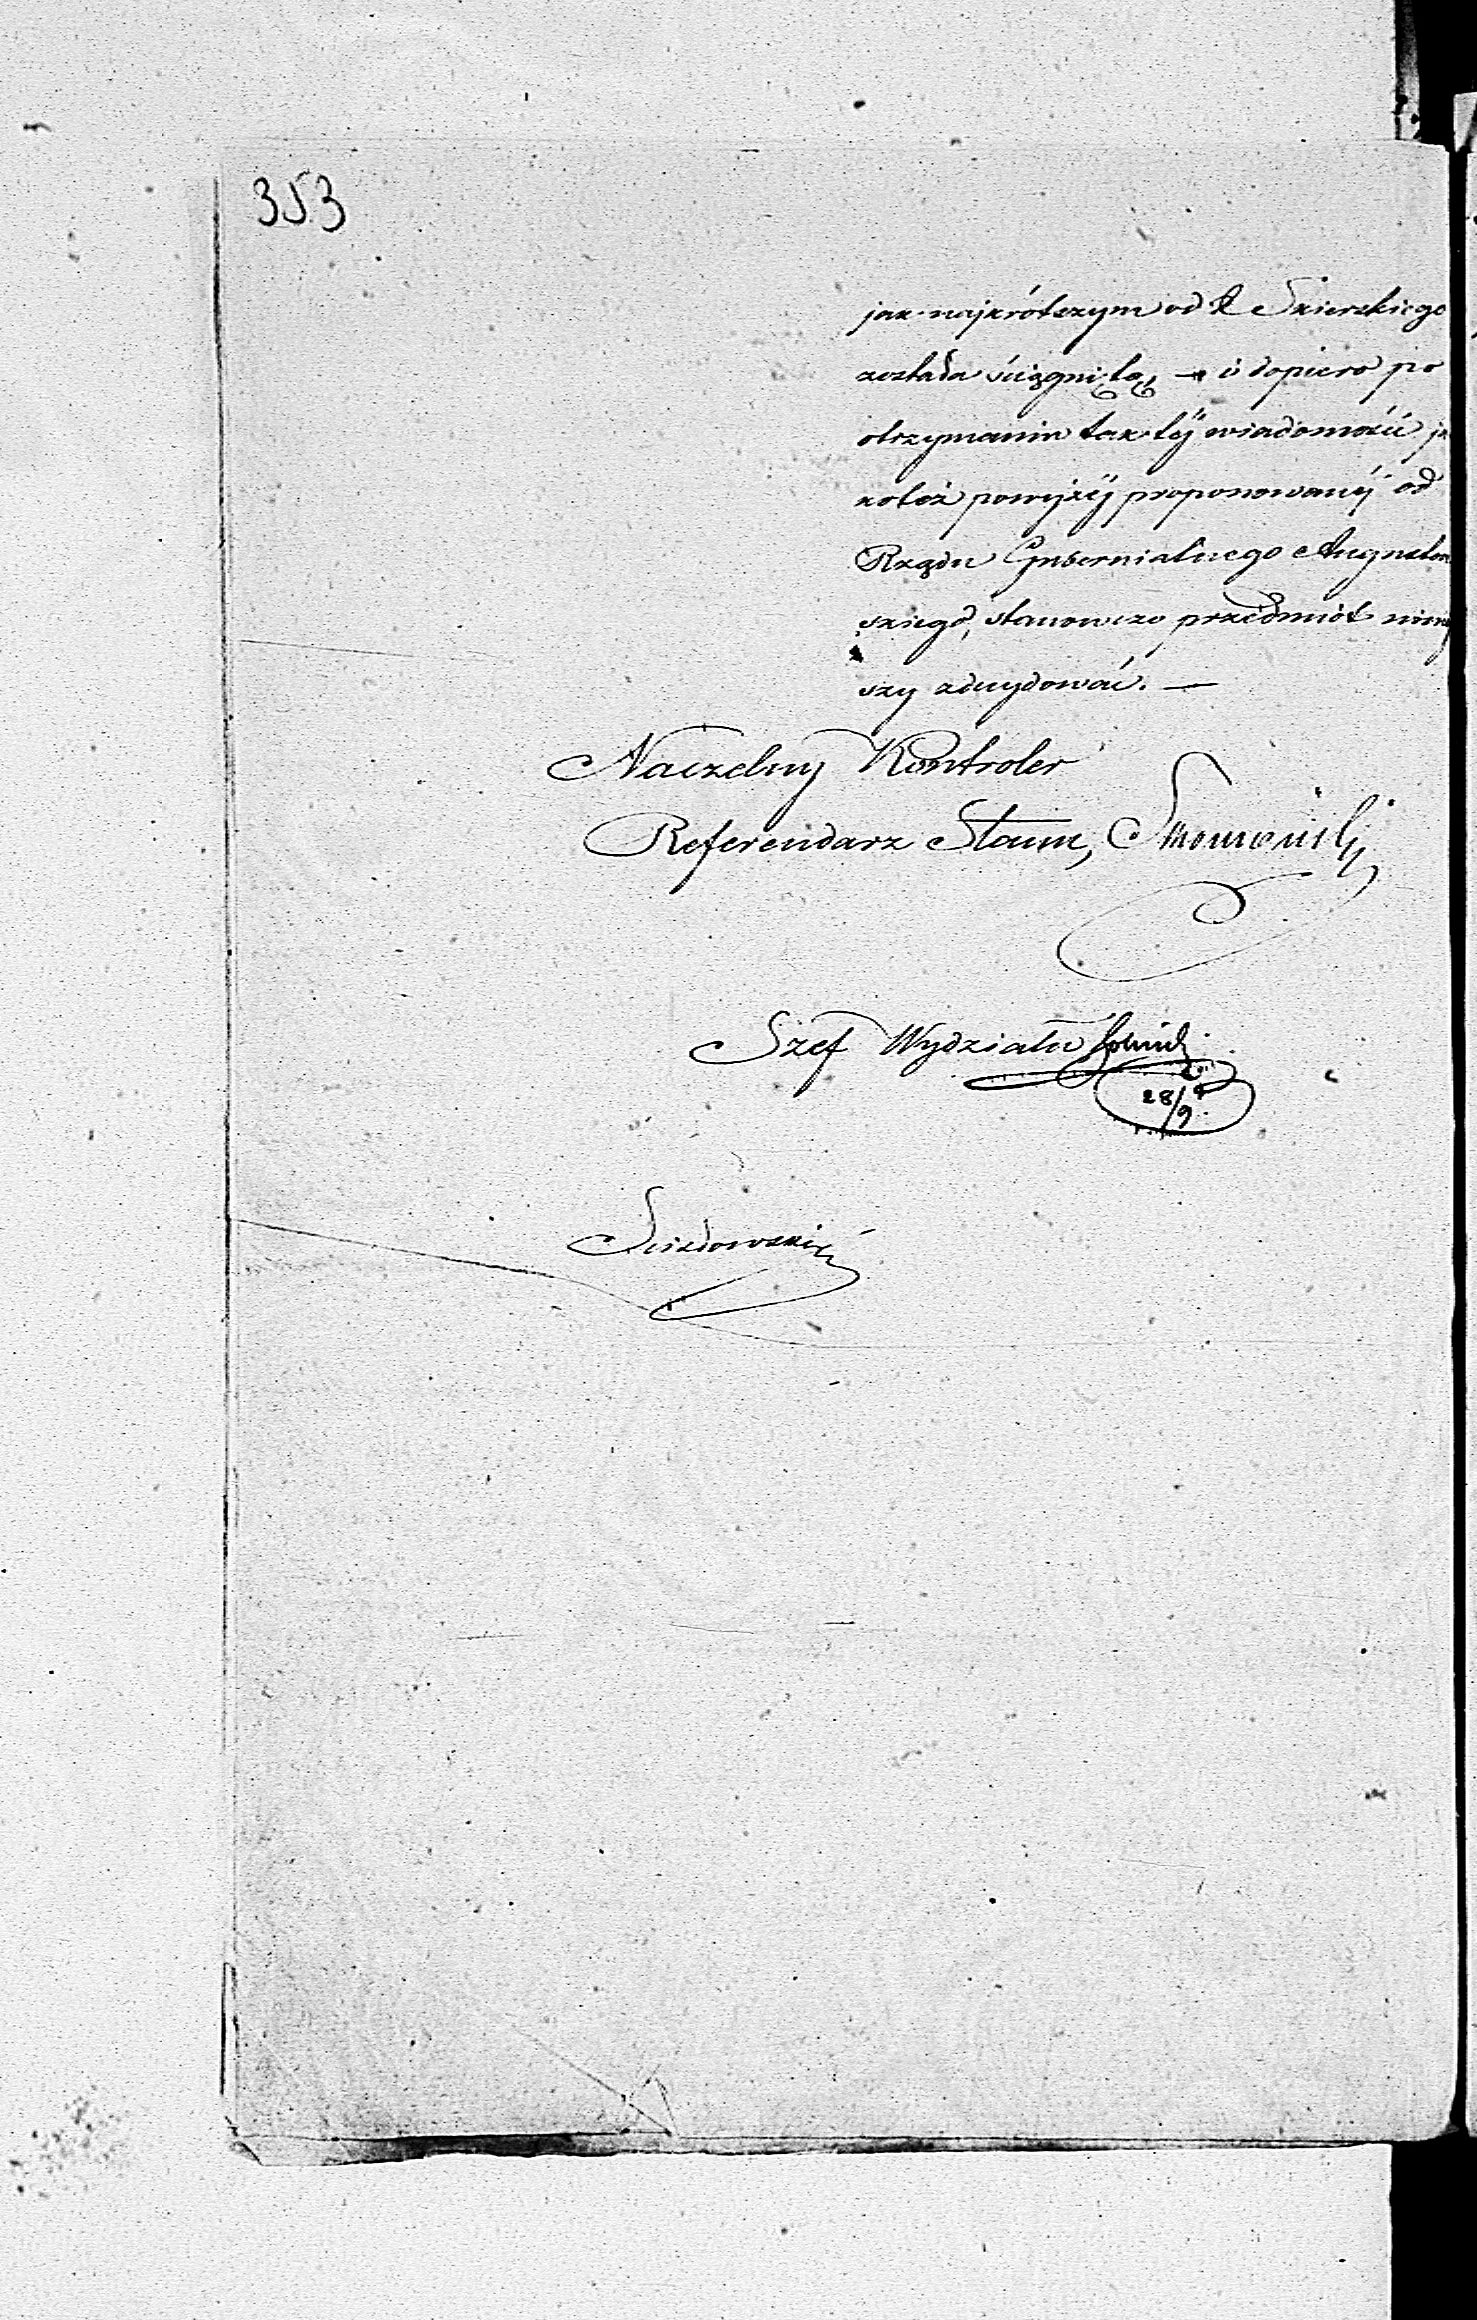 353
jak najkrótszym od P. Skierskiego
została ściągniętą, — i dopiero po
otrzymaniu tak téj wiadomości ja
koteż powyżéj proponowanéj od
Rządu Gubernialnego Augustow
skiego, stanowczo przedmiot niniej
szy zdecydować. —
Naczelny Kontroler
Referendarz Stanu,
Szef Wydziału
28/9